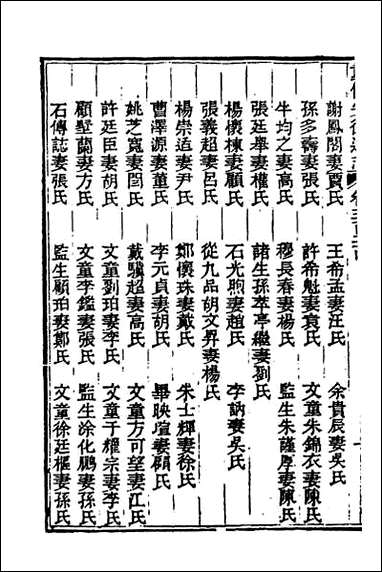 謝鳳閣妻賈氏　王希孟妻汪氏　余貴辰妻吳氏
孫多壽妻張氏　許希魁妻袁氏　文童朱錦衣妻陳氏
牛均之妻高氏　穆長春妻楊氏　監生朱謹厚妻陳氏
張廷舉妻權氏　諸生孫萃亭繼妻劉氏
楊懷棟妻顧氏　石光煦妻趙氏　李訥妻吳氏
張義超妻呂氏　從九品胡文昇妻楊氏
楊崇道妻尹氏　鄭懷珠妻戴氏　朱士輝妻徐氏
曹澤源妻董氏　李元貞妻胡氏　畢映瑄妻顧氏
姚芝寬妻閆氏　戴驥超妻高氏　文童方可望妻江氏
許廷臣妻胡氏　文童劉珀妻李氏　文童于耀宗妻李氏
顧墅蘭妻方氏　文童李鑑妻張氏　監生涂化鵬妻孫氏
石傳誌妻張氏　監生顧珀妻鄭氏　文童徐廷樞妻孫氏